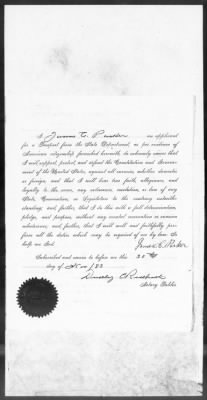 I James C. Parker an applicant
for a Passport from the State Department, as per evidence of
American citizenship furnished herewith, do solemnly swear that
I will support, protect, and defend the Constitution and Govern-
ment of the United States, against all enemies, whether domestic
or foreign; and that I will bear true faith, allegiance, and
loyalty to the same, any ordinance, resolution, or law of any
State, Convention, or Legislature to the contrary notwith-
standing; and, further, that I do this with a full determination,
pledge, and purpose, without any mental reservation or evasion
whatsoever; and, further, that I will well and faithfully per-
form all the duties which may be required of me by law: So
help me God.
James C. Parker
Subscribed and sworn to before me this 20
day of 188
Notary Public